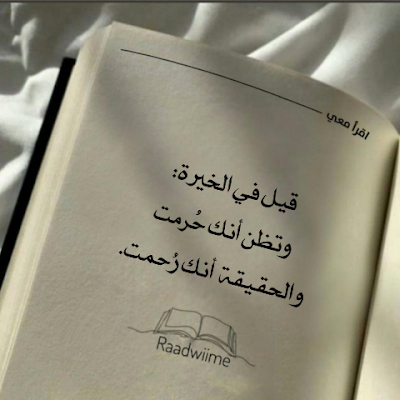 اقرأ معي
قيل في الخيرة:
وتظن أنك حُرمت
والحقيقة أنك رُحمت.
Raadwiime